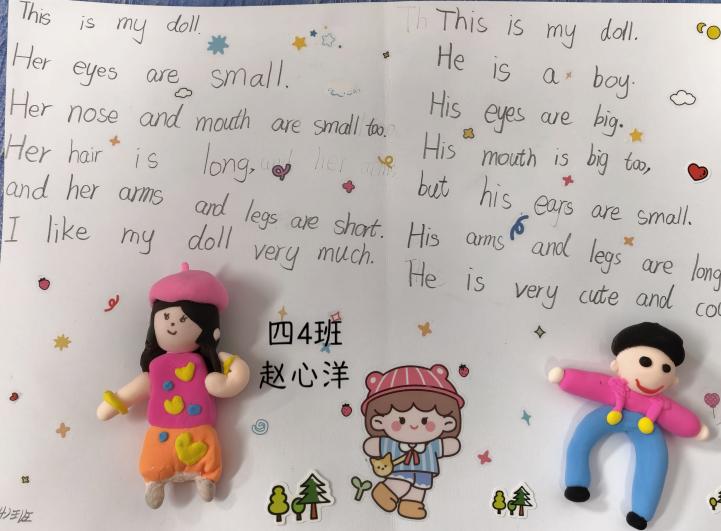 This is my doll.
Her eyes are small.
Her nose and mouth are small too.
Her hair is long,
and her arms and legs are short.
I like my doll very much.
This is my doll.
He is a boy.
His eyes are big.
His mouth is big too,
but his ears are small.
His arms and legs are long
He is very cute and
四4班
赵心洋